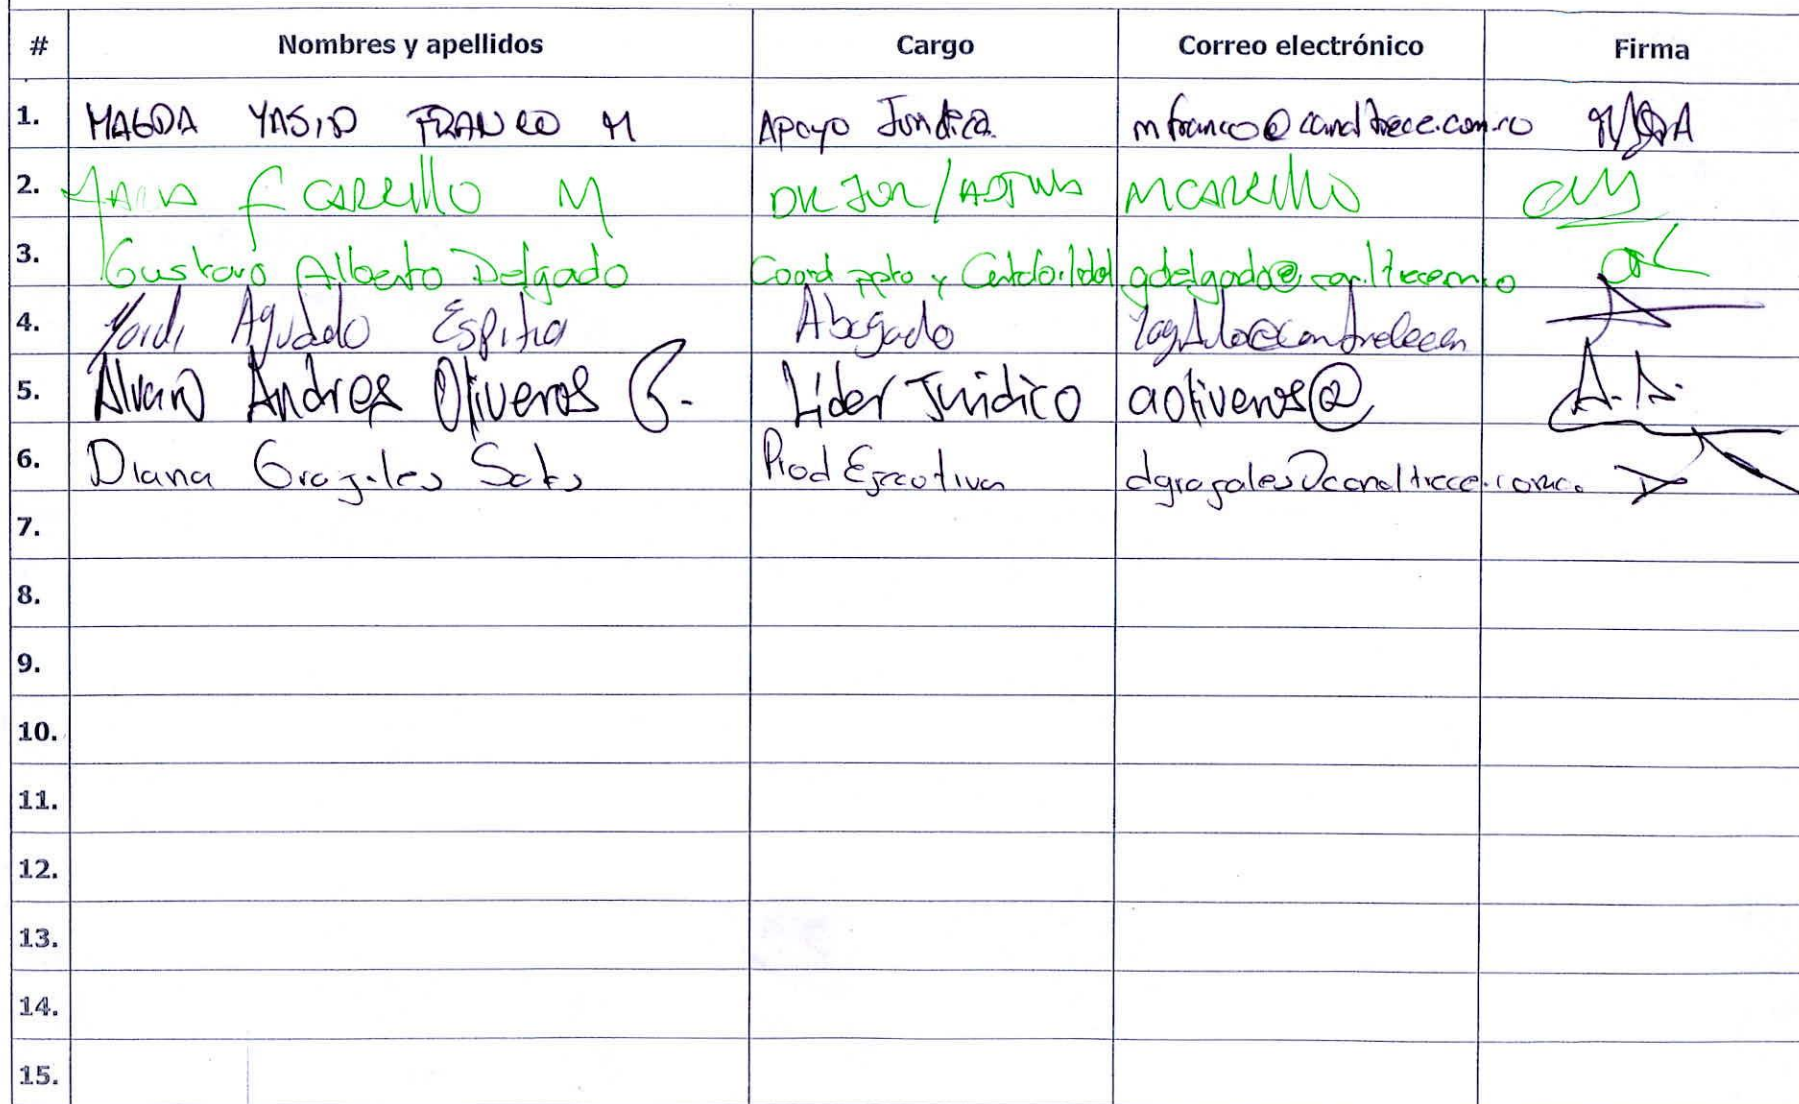 # Nombres y apellidos Cargo Correo electrónico Firma
1. MAGDA YASID FRANCO M Apoyo Jurídica mfranco@canaltrece.com.co
2. F CARRILLO M DIR JUR/ MCARRILLO
3. Gustavo Alberto Delgado Coord ppto y gdelgado@
4. Yordi Agudelo Espitia Abogado
5. Alvaro Andres Oliveros G. Líder Jurídico aoliveros@
6. Diana Grajales Prod Ejecutiva dgrajales@canaltrece.com.co
7.
8.
9.
10.
11.
12.
13.
14.
15.